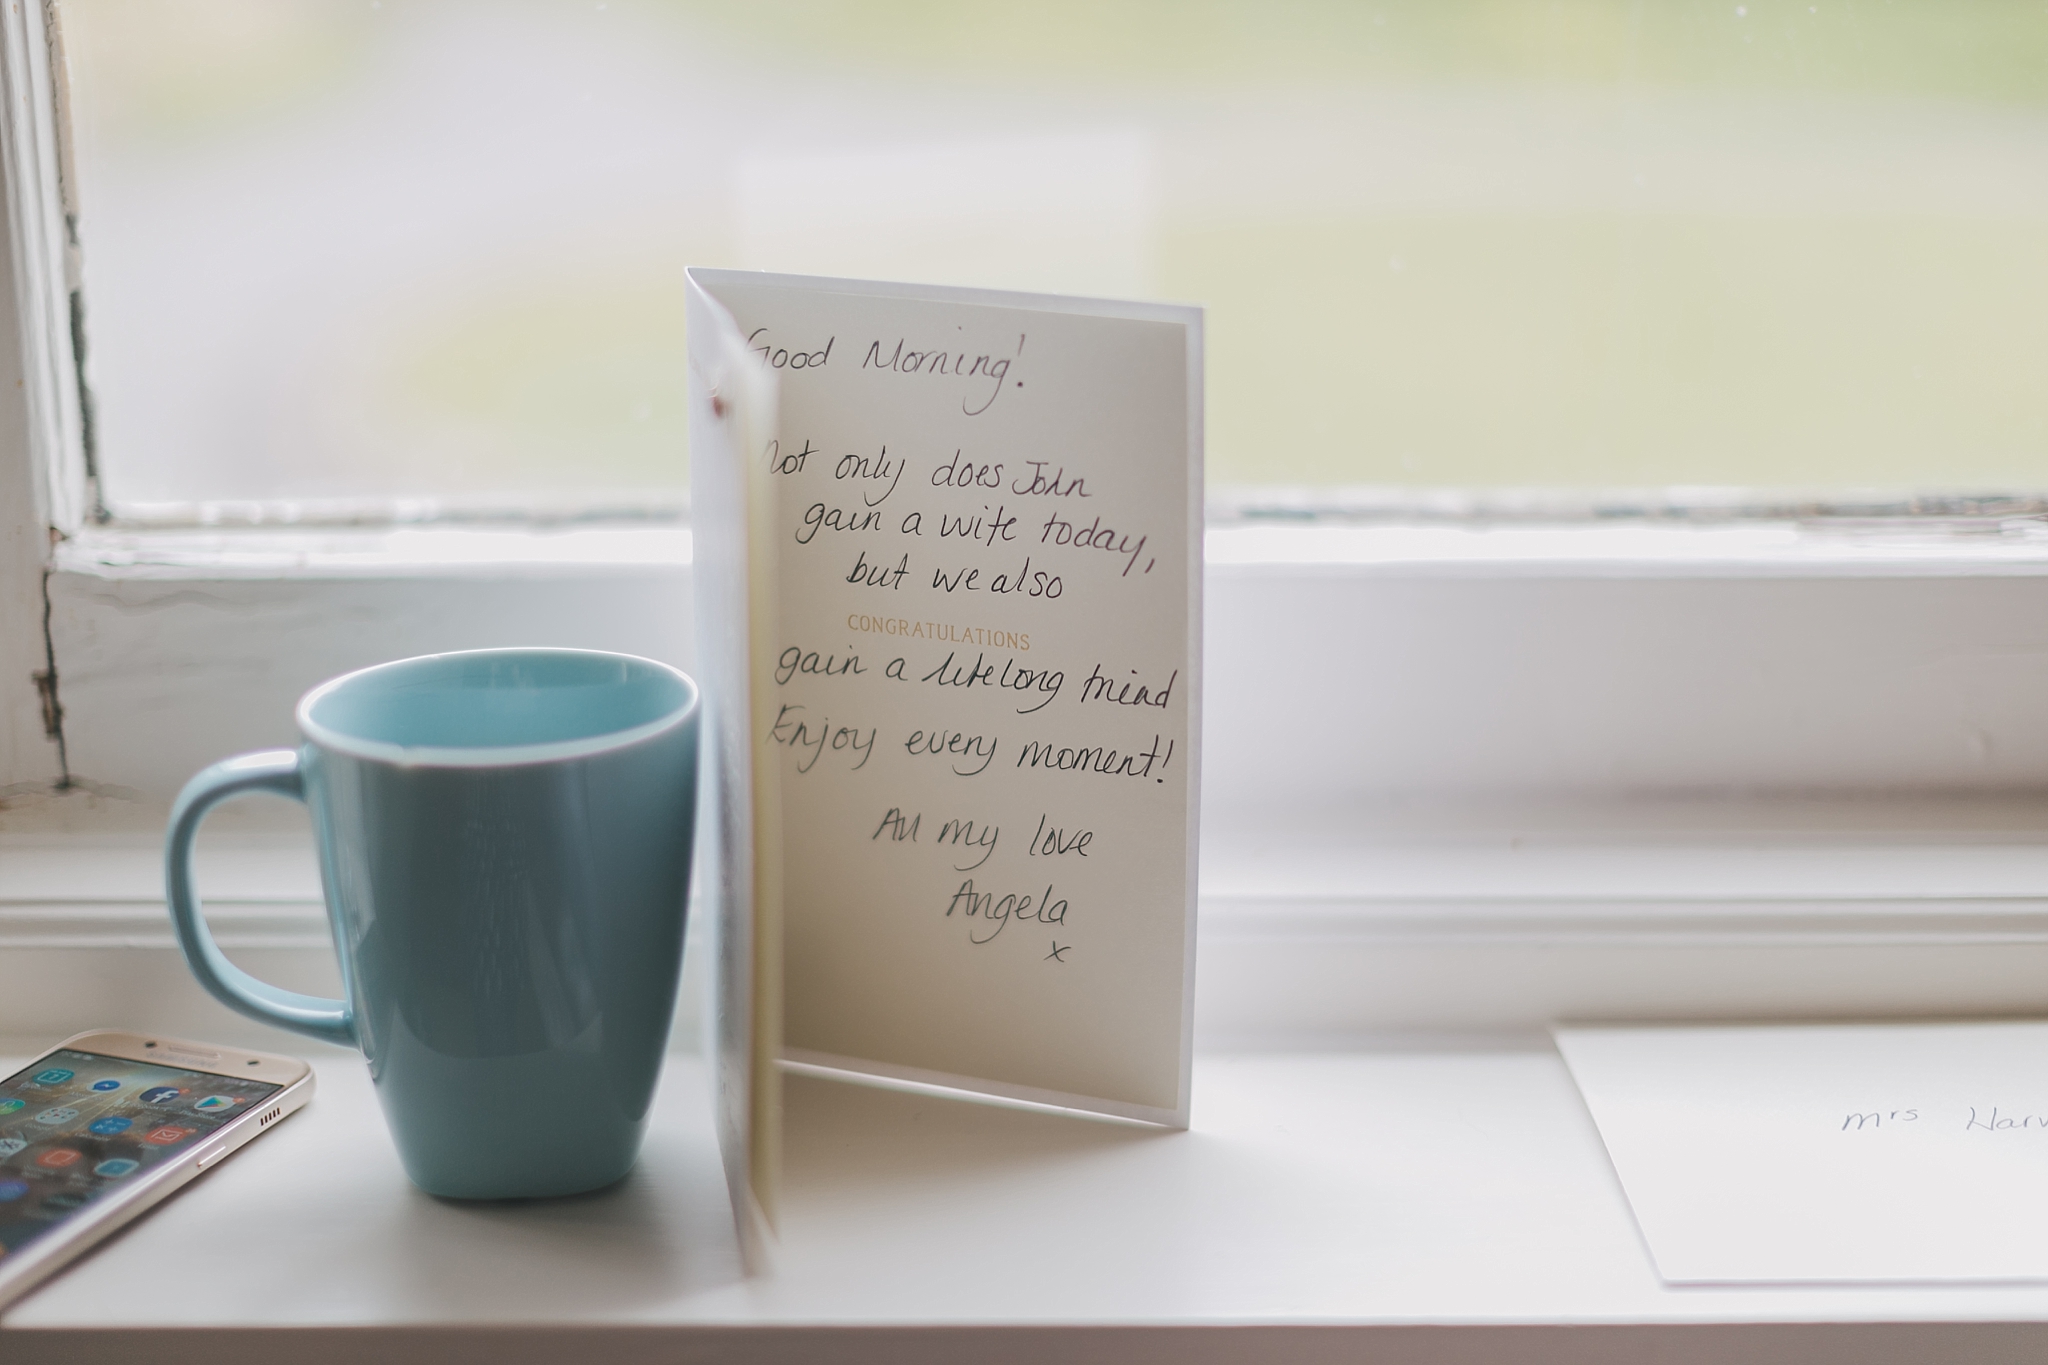 Good Morning!
Not only does John
gain a wife today,
but we also
CONGRATULATIONS
gain a lifelong friend
Enjoy every moment!
All my love
Angela
x
Mrs Harv
SAMSUNG